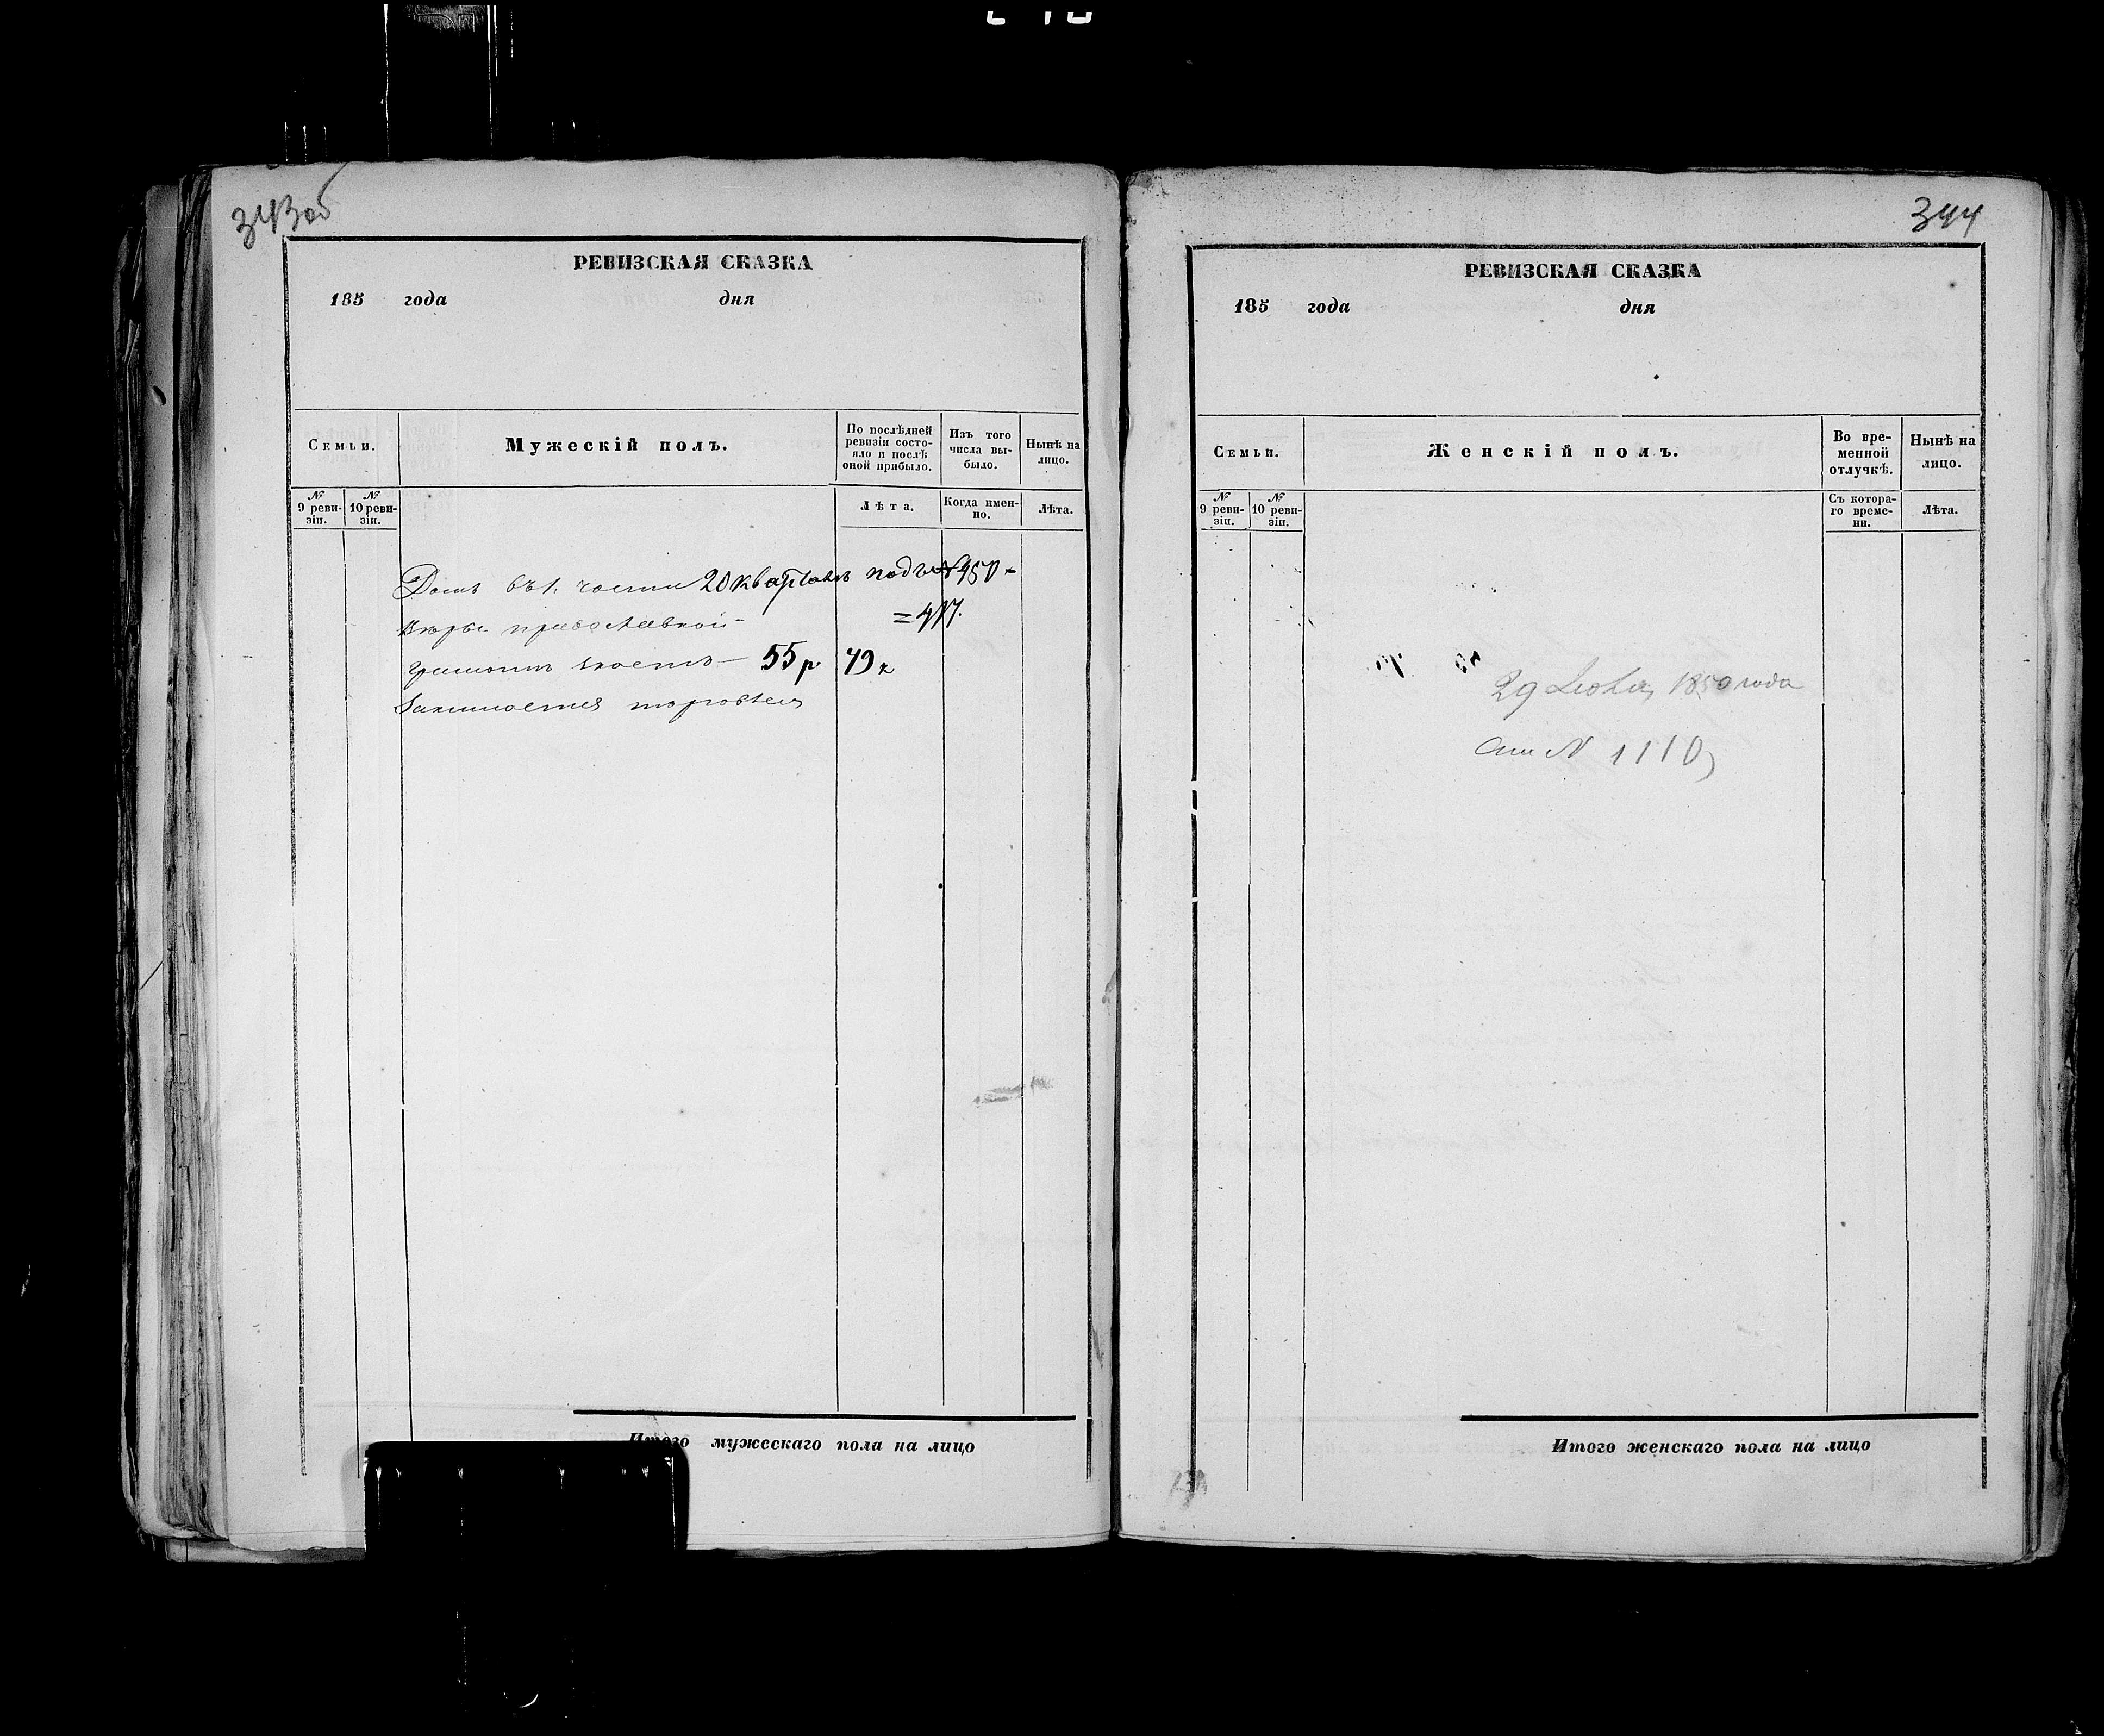 343 об
РЕВИЗСКАЯ СКАЗКА
185 года дня
Семьи.
Мужескій полъ.
По послѣдней ревизіи состояло и послѣ оной прибыло.
Изъ того числа выбыло.
Нынѣ на лицо.
№ 9 ревизіи.
№ 10 ревизіи.
Лѣта.
Когда именно.
Лѣта.
Домъ въ 1. части 20 квартал подъ №
Вѣры православной
грамотѣ знаетъ — 55 р 79 к
Занимается торговлею
Итого мужескаго пола на лицо
344
РЕВИЗСКАЯ СКАЗКА
185 года дня
Семьи.
Женскій полъ.
Во временной отлучкѣ.
Нынѣ на лицо.
№ 9 ревизіи.
№ 10 ревизіи.
Съ котораго времени.
Лѣта.
29 1850 года
№ 1110
Итого женскаго пола на лицо